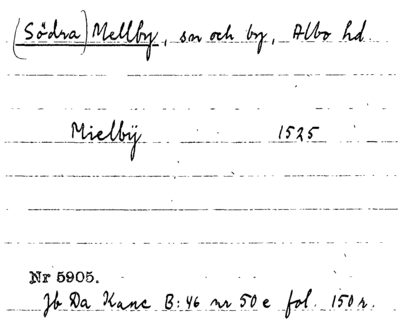 (Södra) Mellby, sn och by, Albo hd.
Mielbÿ 1525
Nr 5905.
Jb Da Kanc B:46 nr 50 e fol. 150 r.